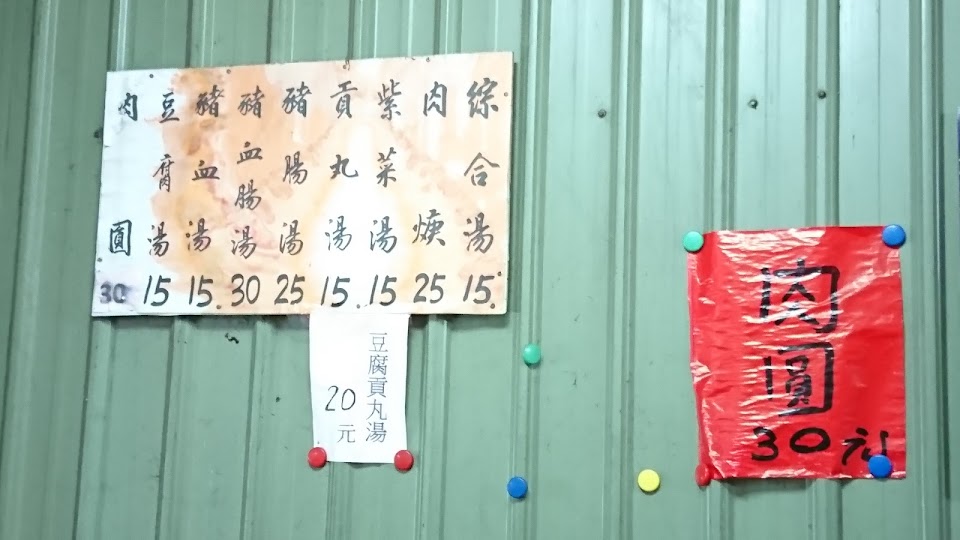 綜合湯15.
肉焿25
紫菜湯15
貢丸湯15.
豬腸湯25
豬血腸湯30
豬血湯15.
豆腐湯15
肉圓30
豆腐貢丸湯
20元
肉圓
30元